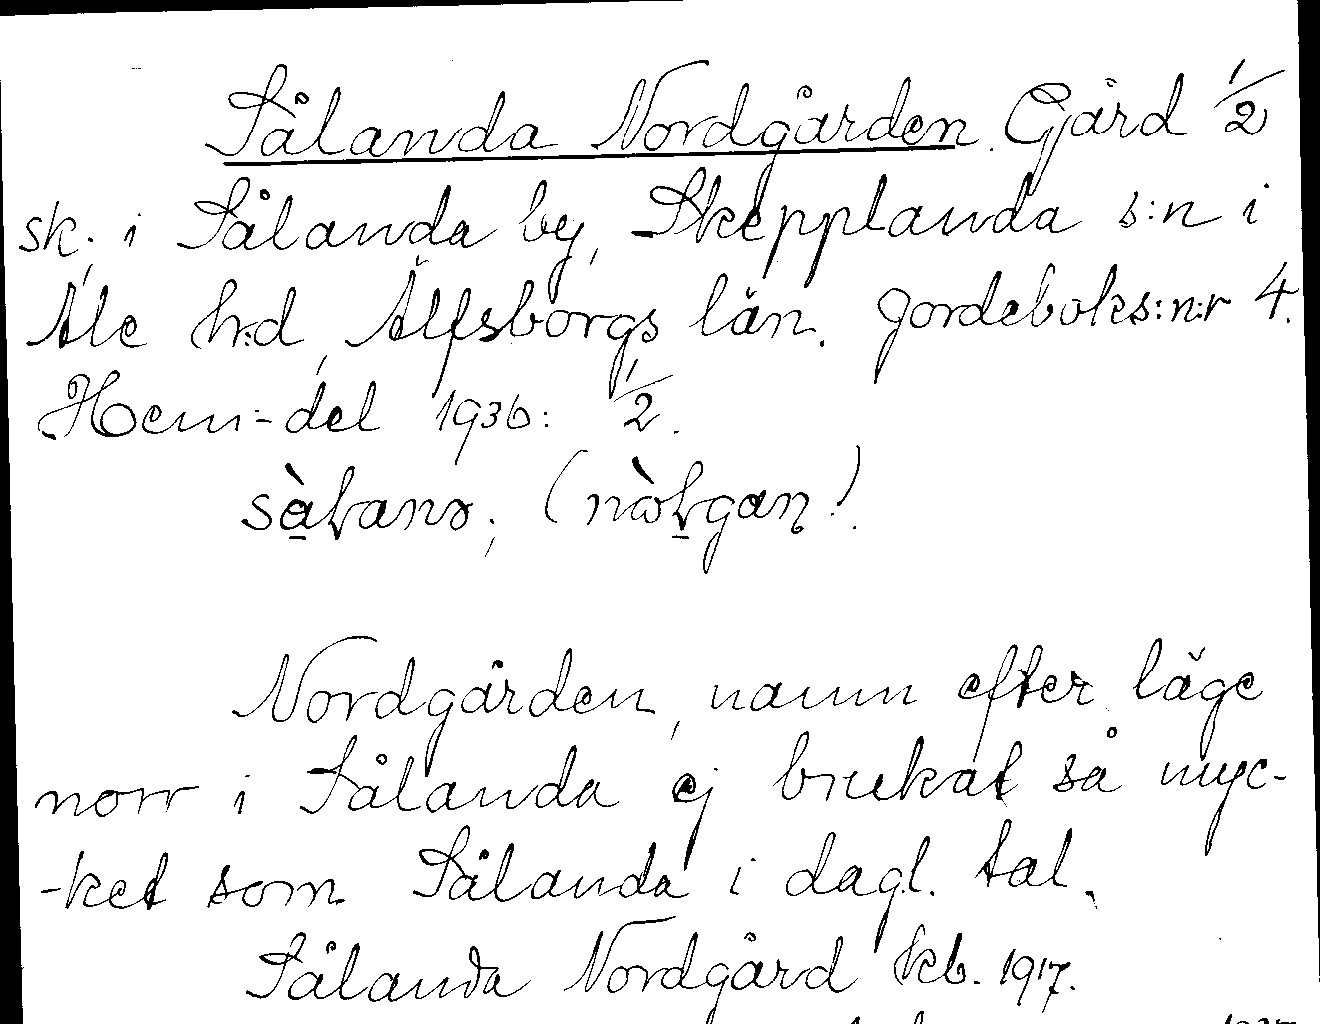 Sålanda Nordgården. Gård 1/2
sk. i Sålanda by, Skepplanda s:n i
Ale h:d, Älfsborgs län. Jordeboks:n:r 4.
Hem:-del 1936: 1/2.
Nordgården, namn efter läge
norr i Sålanda ej brukat så myc-
-ket som Sålanda i dagl. tal.
Sålanda Nordgård kb. 1917.